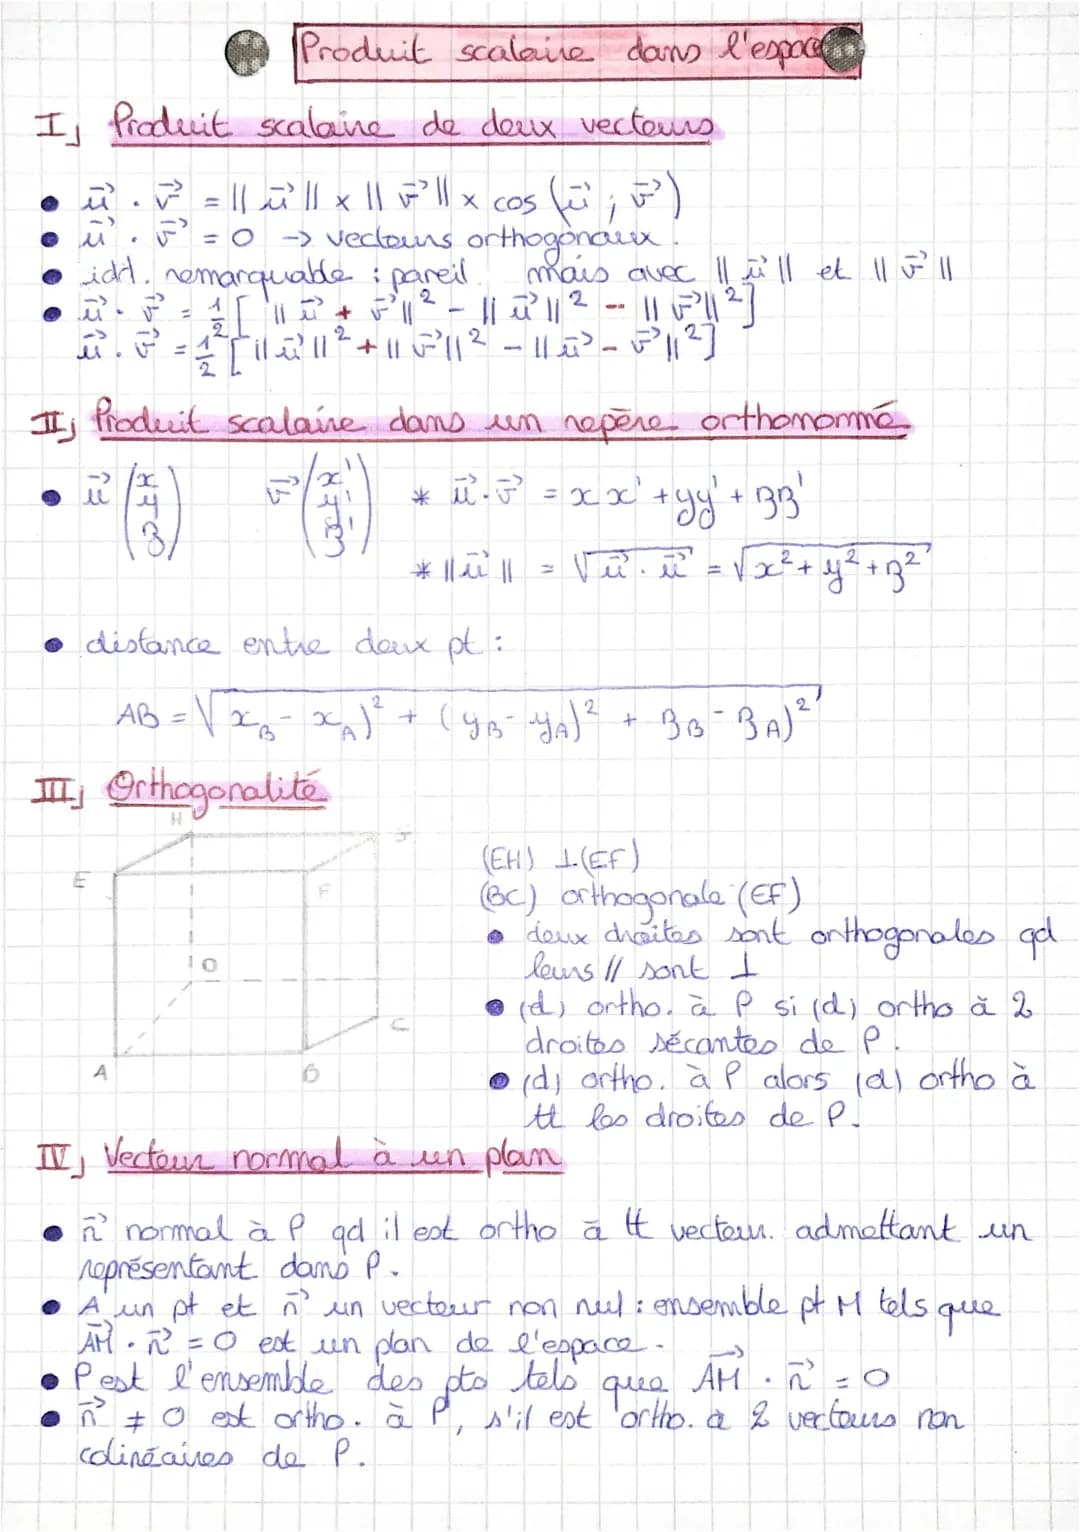 Produit scalaire dans l'espace
I) Produit scalaire de deux vecteurs
• u⃗ . v⃗ = || u⃗ || x || v⃗ || x cos (u⃗ ; v⃗)
• u⃗ . v⃗ = 0 -> vecteurs orthogonaux.
• idt. remarquable : pareil mais avec || u⃗ || et || v⃗ ||
• u⃗ . v⃗ = 1/2 [ || u⃗ + v⃗ ||² - || u⃗ ||² - || v⃗ ||² ]
u⃗ . v⃗ = 1/2 [ || u⃗ ||² + || v⃗ ||² - || u⃗ - v⃗ ||² ]
II) Produit scalaire dans un repère orthonormé
• u⃗ (x y z) v⃗ (x' y' z') * u⃗ . v⃗ = xx' + yy' + zz'
* || u⃗ || = √(u⃗ . u⃗) = √(x² + y² + z²)
• distance entre deux pt :
AB = √ x_B - x_A)² + (y_B - y_A)² + z_B - z_A)²
III) Orthogonalité
H
E
F
(EH) ⊥ (EF)
(BC) orthogonale (EF)
• deux droites sont orthogonales qd
leurs // sont ⊥
• (d) ortho. à P si (d) ortho à 2
droites sécantes de P.
• (d) ortho. à P alors (d) ortho à
tt les droites de P.
D
C
A
B
IV) Vecteur normal à un plan
• n⃗ normal à P qd il est ortho à tt vecteur. admettant un
représentant dans P.
• A un pt et n⃗ un vecteur non nul : ensemble pt M tels que
AM⃗ . n⃗ = 0 est un plan de l'espace.
• P est l'ensemble des pts tels que AM⃗ . n⃗ = 0
• n⃗ ≠ 0 est ortho. à P, s'il est ortho. à 2 vecteurs non
colinéaires de P.